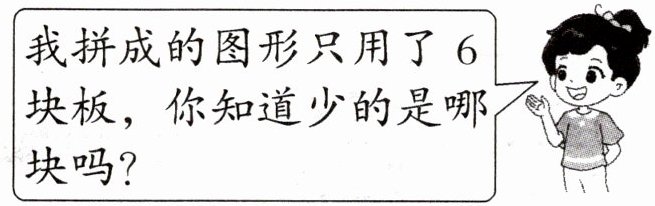 我拼成的图形只用了 6
块板，你知道少的是哪
块吗？